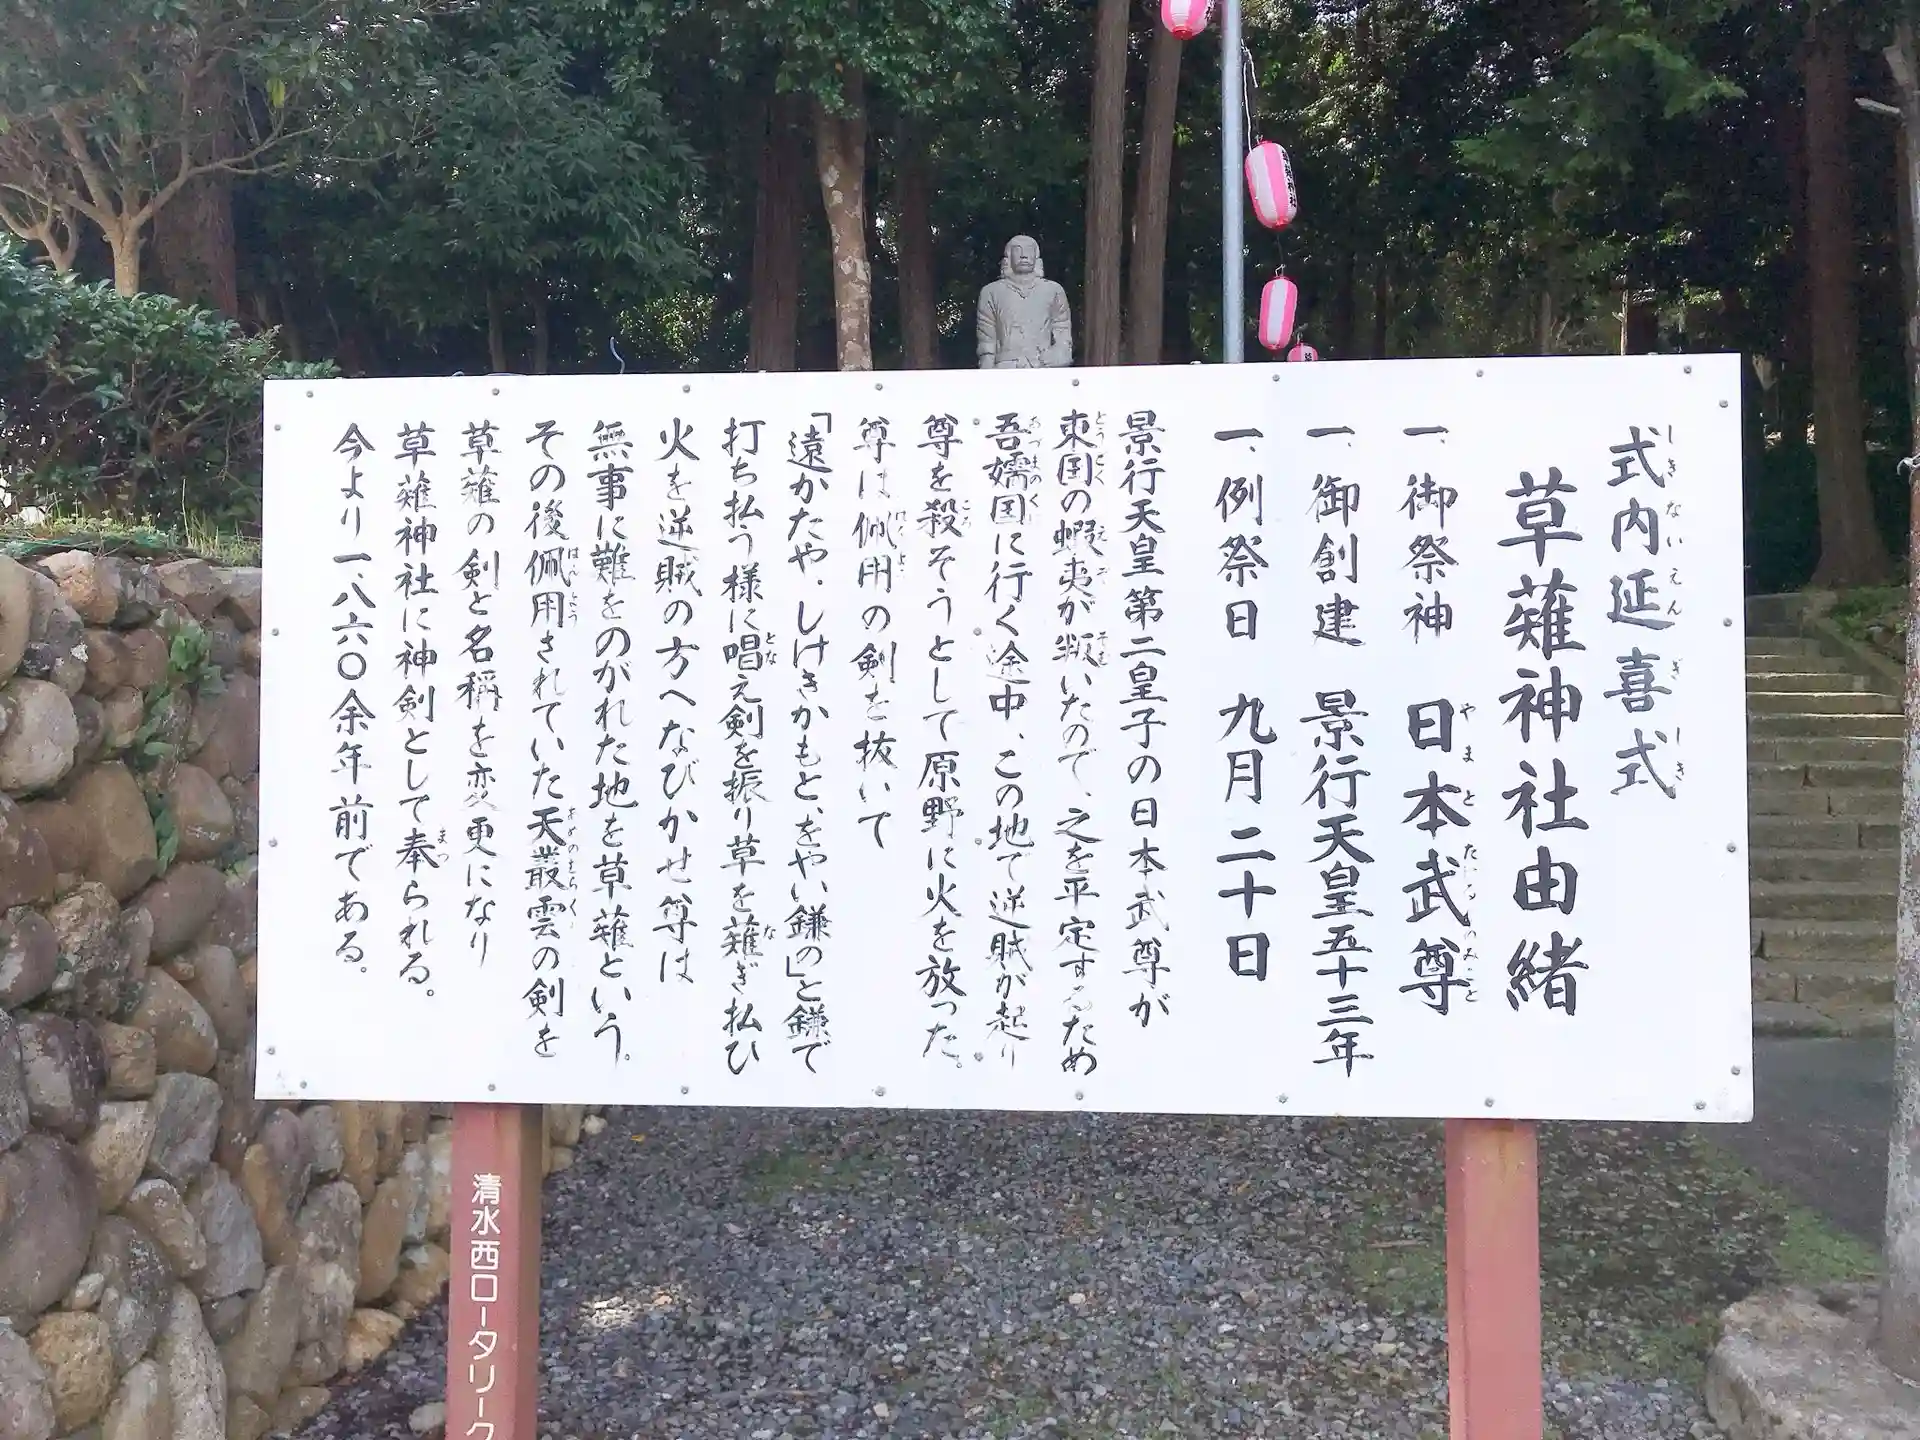 式内延喜式
草薙神社由緒
一、御祭神 日本武尊
一、御創建 景行天皇五十三年
一、例祭日 九月二十日
景行天皇第二皇子の日本武尊が
東国の蝦夷が叛いたので、之を平定するため
吾嬬国に行く途中、この地で逆賊が起り
尊を殺そうとして原野に火を放った。
尊は佩用の剣を抜いて
「遠かたや、しけきかもと、をやい鎌の」と鎌で
打ち払う様に唱え剣を振り草を薙ぎ払ひ
火を逆賊の方へなびかせ尊は
無事に難をのがれた地を草薙という。
その後佩用されていた天叢雲の剣を
草薙の剣と名称を変更になり
草薙神社に神剣として奉られる。
今より一、八六〇余年前である。
清水西ロータリーク